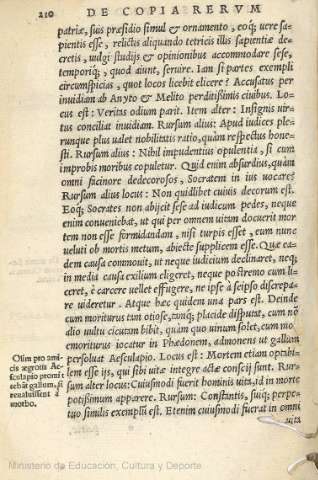 210 DE COPIA RERVM
patriæ, suis præsidio simul & ornamento, eoq; uere sa-
pientis esse, relictis aliquando tetricis illis sapientiæ de-
cretis, uulgi studijs & opinionibus accommodare sese,
temporiq;, quod aiunt, seruire. Iam si partes exempli
circumspicias, quot locos licebit elicere? Accusatus per
inuidiam ab Anyto & Melito perditissimis ciuibus. Lo-
cus est: Veritas odium parit. Item alter: Insignis uir-
tus conciliat inuidiam. Rursum alius: Apud iudices ple-
runque plus ualet nobilitatis ratio, quàm respectus hone-
sti. Rursum alius: Nihil impudentius opulentia, si cum
improbis moribus copuletur. Quid enim absurdius, quàm
omni facinore dedecorosos, Socratem in ius uocare?
Rursum alius locus: Non quidlibet cuiuis decorum est.
Eoq; Socrates non abijcit sese ad iudicum pedes, neque
enim conueniebat, ut qui per omnem uitam docuerit mor
tem non esse formidandam, nisi turpis esset, eum nunc
ueluti ob mortis metum, abiectè supplicem esse. Quæ ea-
dem causa commouit, ut neque iudicium declinaret, neq;
in media causa exilium eligeret, neque postremo cum li-
ceret, è carcere uellet effugere, ne ipse à seipso disrepa-
re uideretur. Atque hæc quidem una pars est. Deinde
cum moriturus tam otiose, tamq; placide disputat, cum nõ
alio uultu cicutam bibit, quàm quo uinum solet, cum mox
moriturus iocatur in Phædonem, admonens ut gallum
persoluat Aesculapio. Locus est: Mortem etiam optibi-
lem esse ijs, qui sibi uitæ integre actæ conscij sunt. Rur-
sum alter locus: Cuiusmodi fuerit hominis uita, id in morte
potissimum apparere. Rursum: Constantis, suiq; perpe-
tuo similis exemplũ est. Etenim cuiusmodi fuerat in omni
uita
Olim pro ami
cis ægrotis Ae-
sculapio promit
tebãt gallum, si
reualuissent à
morbo.
Ministerio de Educación, Cultura y Deporte